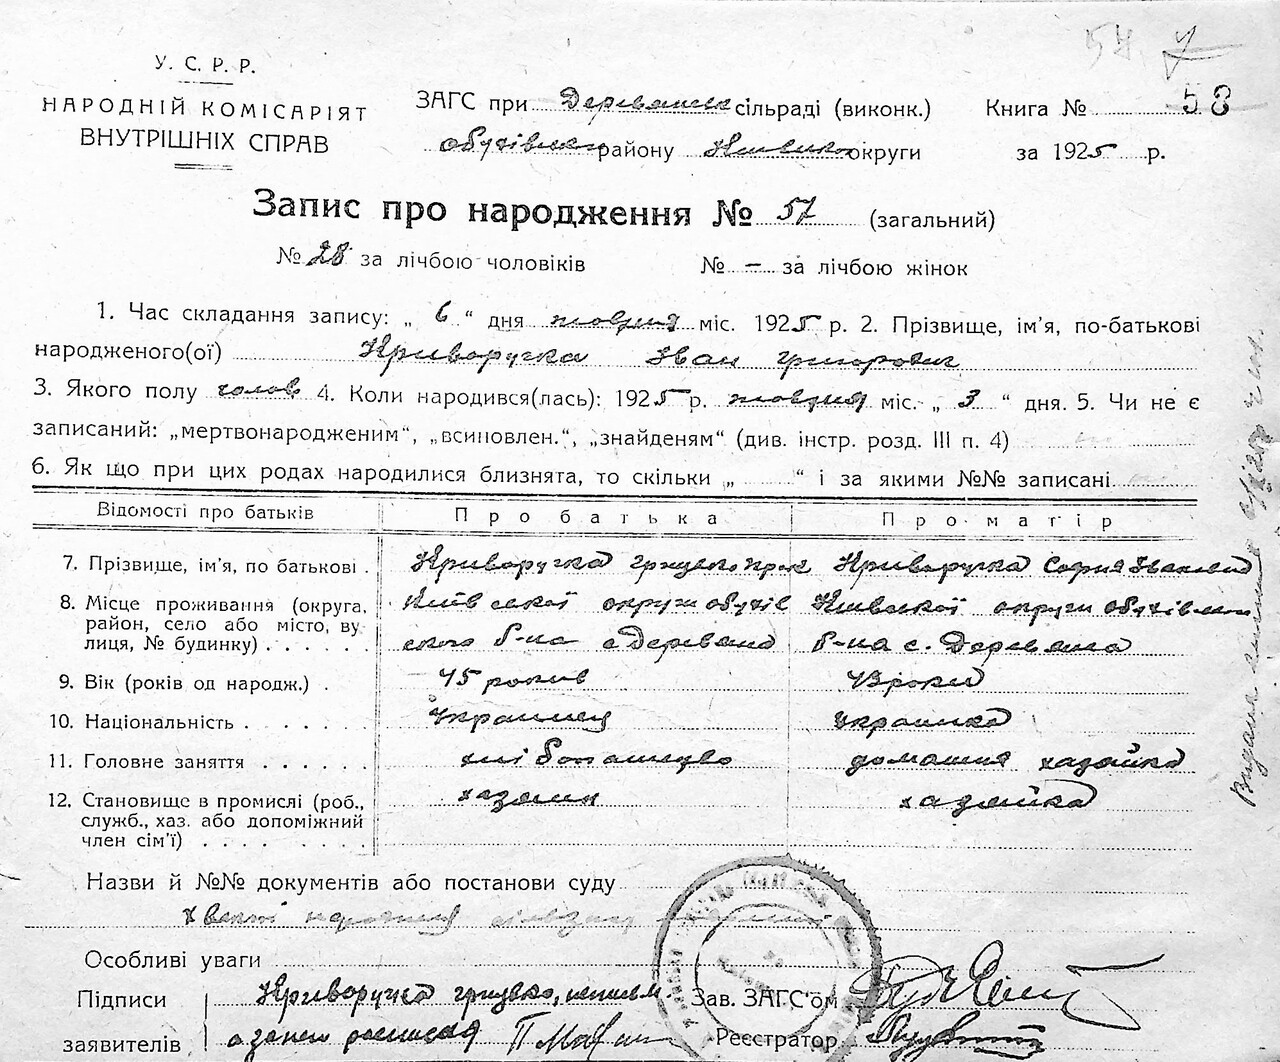 54 7
У. С. Р. Р.
НАРОДНІЙ КОМІСАРІЯТ
ВНУТРІШНІХ СПРАВ
ЗАГС при Деревянск сільраді (виконк.)
Книга № 58
обухівськ району Київської округи
за 1925 р.
Запис про народження № 57 (загальний)
№ 28 за лічбою чоловіків № – за лічбою жінок
1. Час складання запису: „ 6 “ дня жовтня міс. 1925 р. 2. Прізвище, ім’я, по-батькові
народженого(ої) Криворучка Іван Григорович
3. Якого полу чолов 4. Коли народився(лась): 1925 р. жовтня міс. „ 3 “ дня. 5. Чи не є
записаний: „мертвонародженим“, „всиновлен.“, „знайденям“ (див. інстр. розд. III п. 4)
6. Як що при цих родах народилися близнята, то скільки „ “ і за якими №№ записані
Відомості про батьків Про батька Про матір
7. Прізвище, ім’я, по батькові . Криворучка Грицько Криворучка София Ивановна
8. Місце проживання (округа, Київської округи обухів Київської округи обухівськ
район, село або місто, ву ского р-на с Деревяна р-на с. Деревяна
лиця, № будинку) . . . . . .
9. Вік (років од народж.) . 45 років 43 роки
10. Національність . . . . . . Украинец украинка
11. Головне заняття . . . . . хліборобство домашня хазяйка
12. Становище в промислі (роб., хазяин хазяйка
служб., хаз. або допоміжний
член сім’ї) . . . . . . . . .
Назви й №№ документів або постанови суду
Особливі уваги
Підписи Криворучка Грицько, неписьм Зав. ЗАГС’ом
заявителів а занего росписався Реєстратор